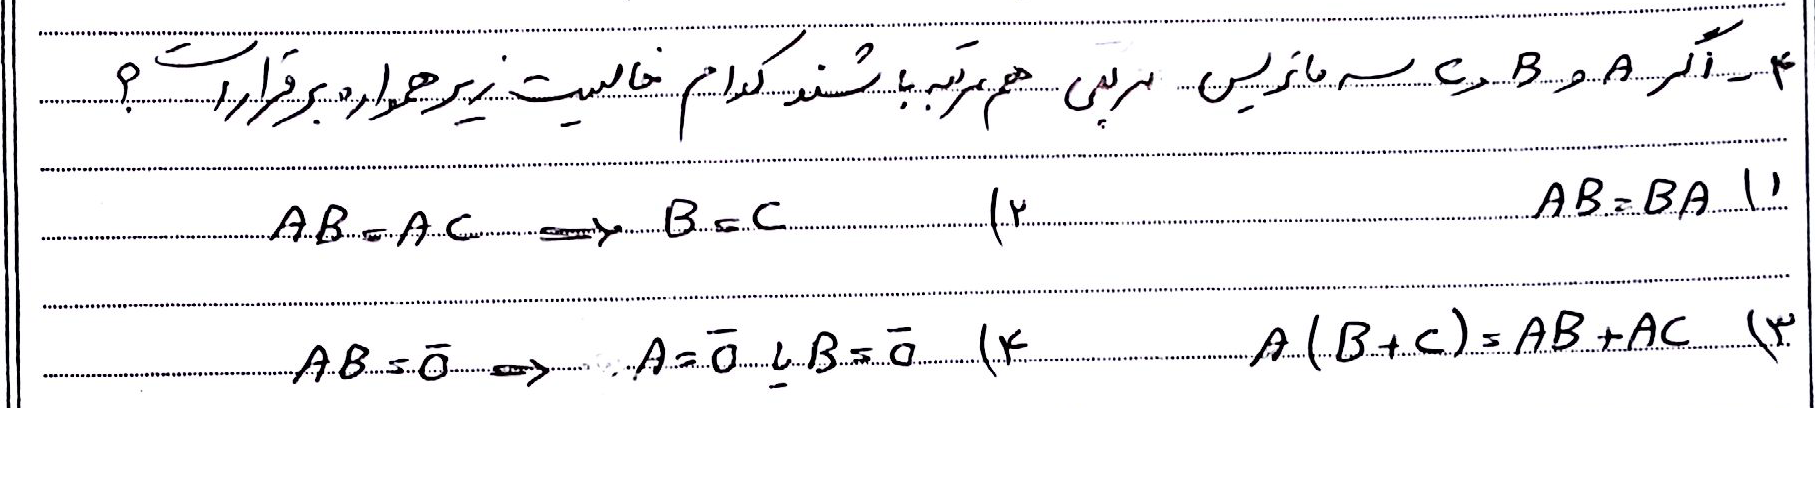 ۴ـ اگر A و B و C سه ماتریس مربعی هم مرتبه باشند کدام خاصیت زیر همواره برقرار است؟
۱) AB = BA ۲) AB = AC ⟹ B = C
۳) A(B+C) = AB + AC ۴) AB = Ō ⟹ A = Ō یا B = Ō